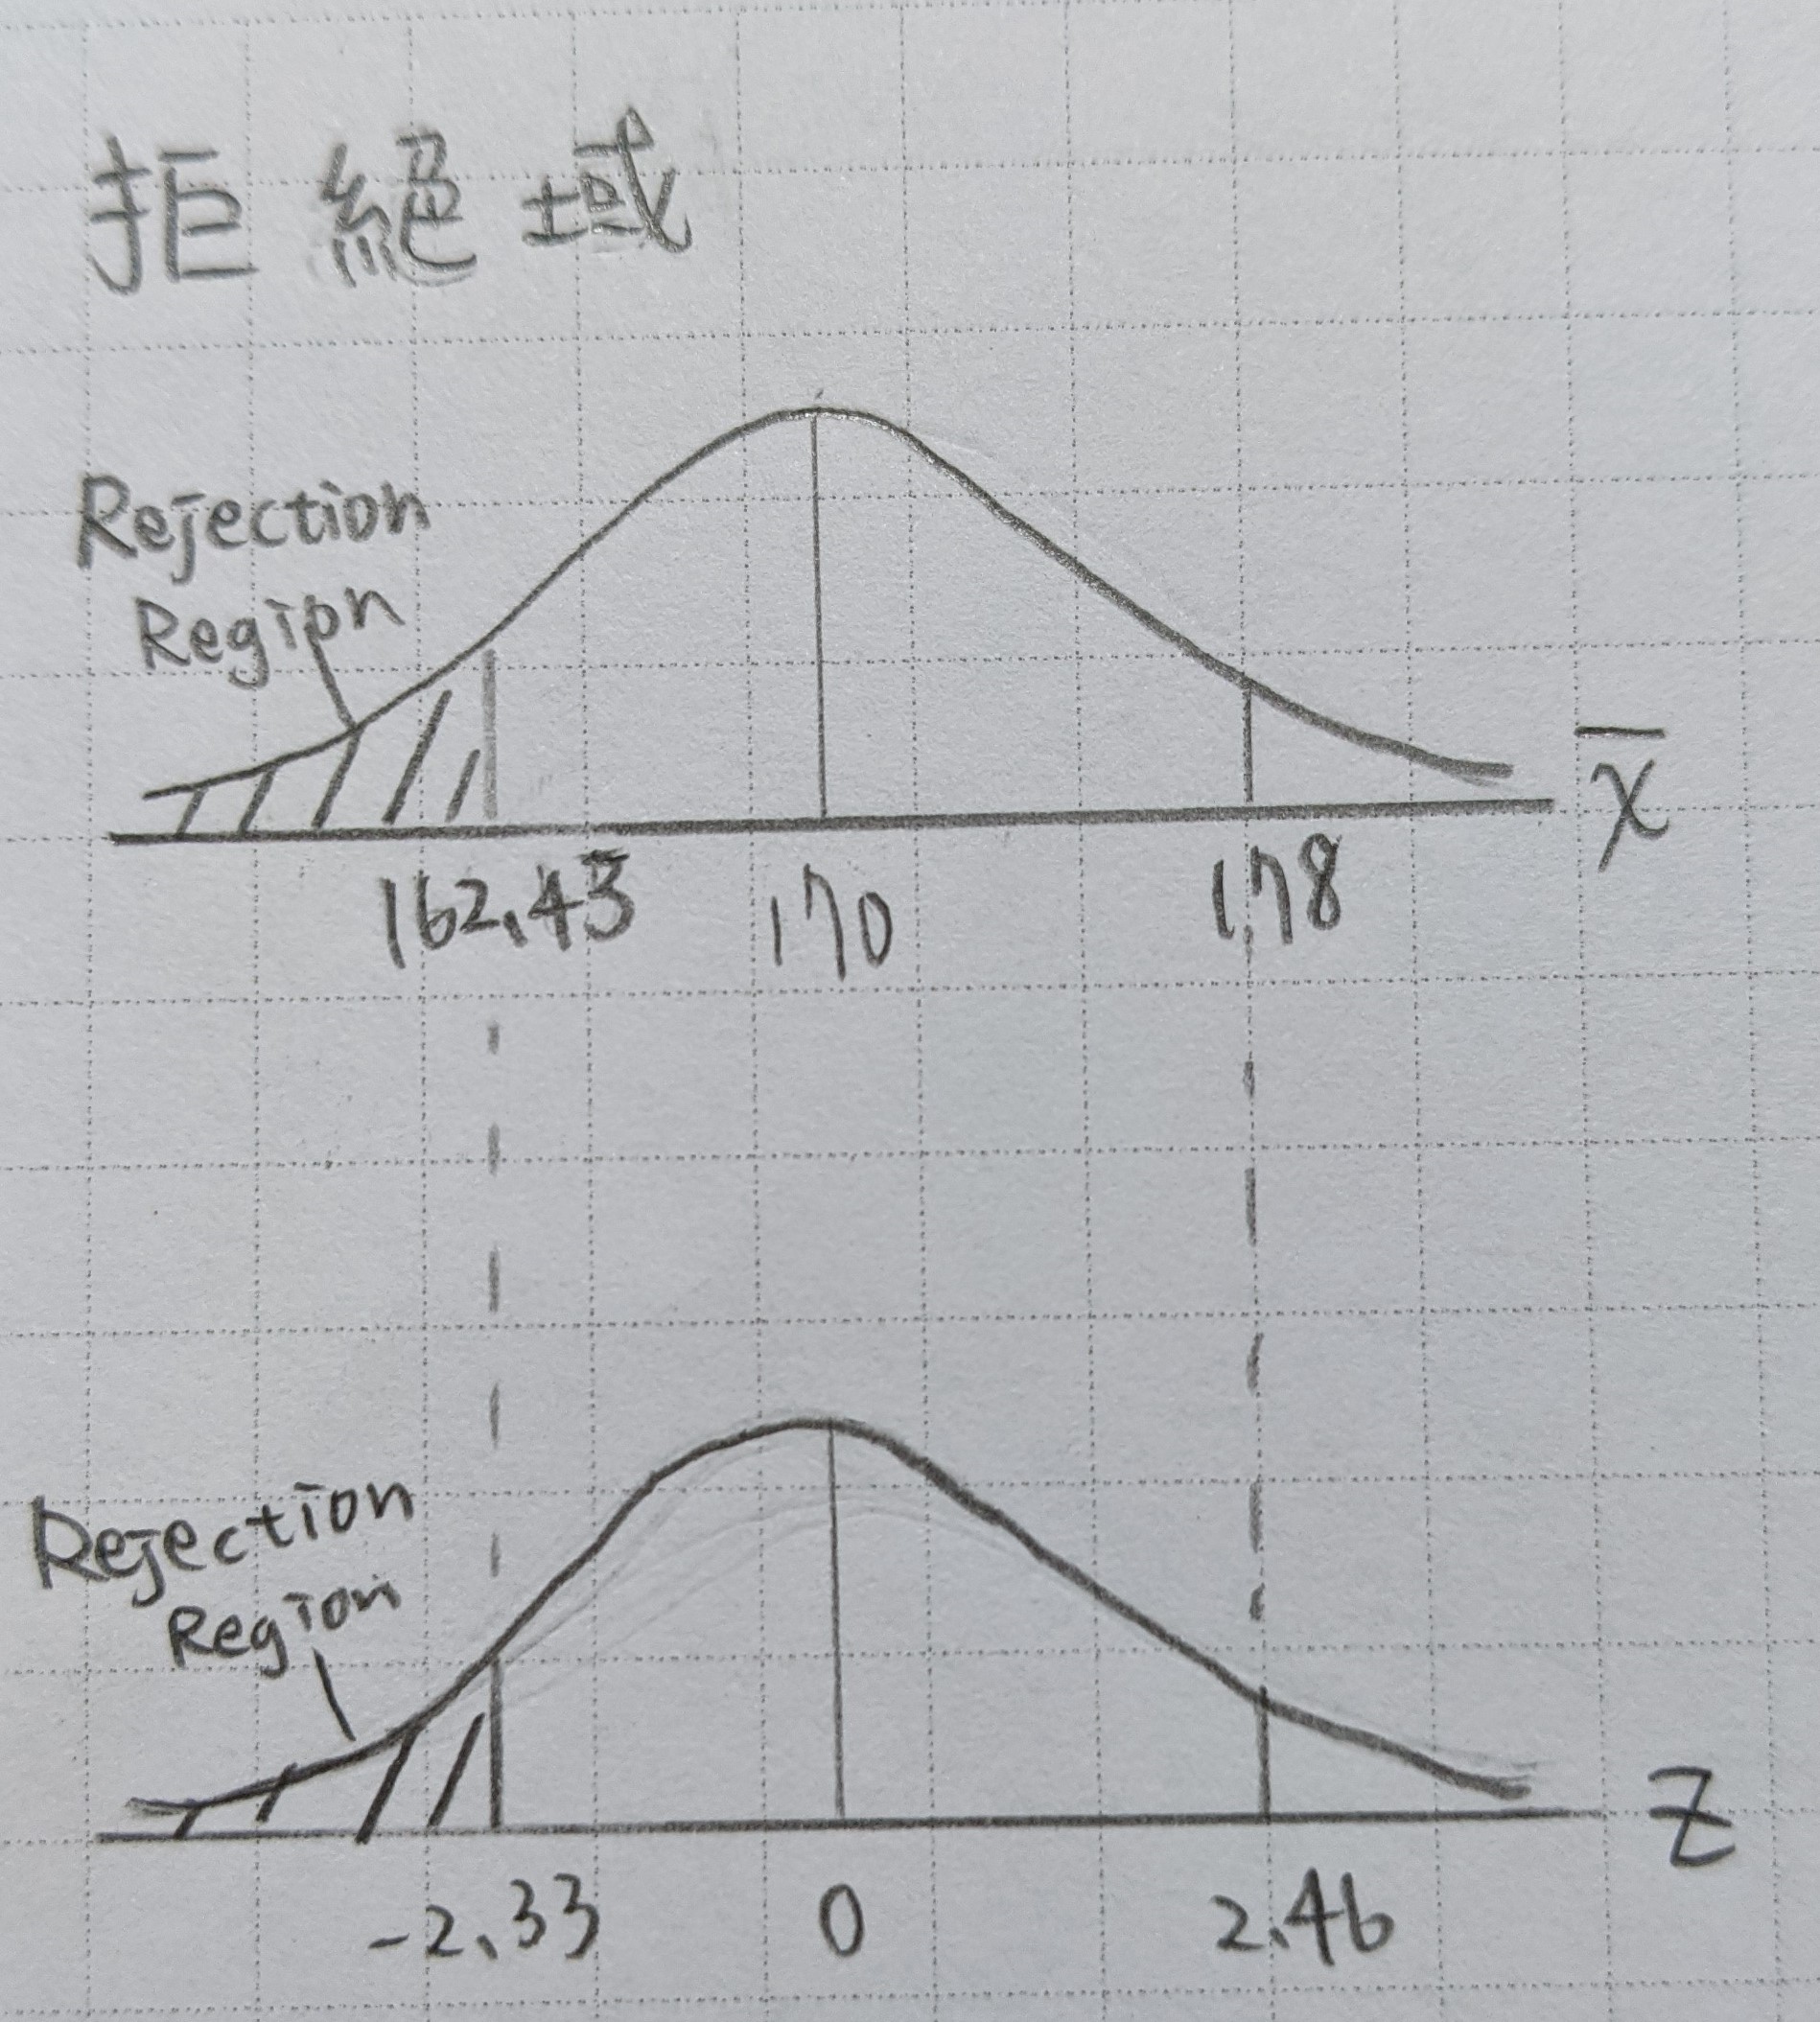 拒絕域
Rejection
Region
x̄
162.43 170 178
Rejection
Region
Z
-2.33 0 2.46